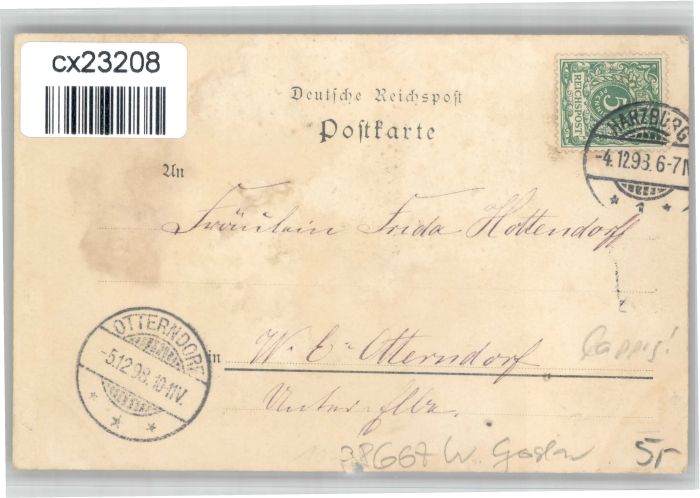 cx23208
Deutsche Reichspost
Postkarte
5
REICHSPOST
HARZBURG
-4.12.98.6-7N.
1
An
Fräulein Frida Hottendorff
OTTERNDORF
-5.12.98.10-11V.
in
W. E. Otterndorf
Unter-Elbe.
38667 W. Goslar
5,-